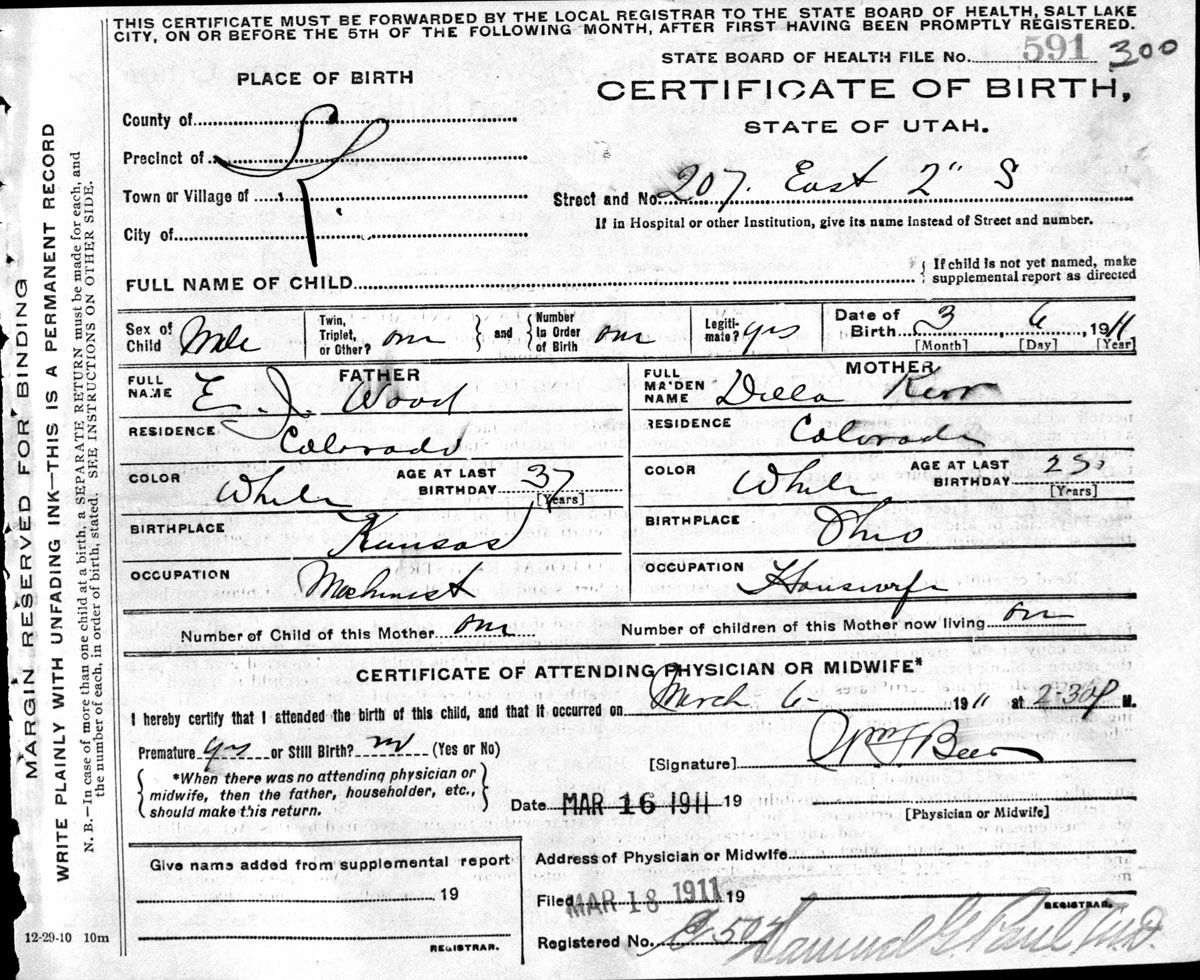 THIS CERTIFICATE MUST BE FORWARDED BY THE LOCAL REGISTRAR TO THE STATE BOARD OF HEALTH, SALT LAKE
CITY, ON OR BEFORE THE 5TH OF THE FOLLOWING MONTH, AFTER FIRST HAVING BEEN PROMPTLY REGISTERED.
STATE BOARD OF HEALTH FILE No. 591 300
PLACE OF BIRTH
CERTIFICATE OF BIRTH,
STATE OF UTAH.
County of
Precinct of
Town or Village of
City of
Street and No. 207. East 2" S
If in Hospital or other Institution, give its name instead of Street and number.
FULL NAME OF CHILD
If child is not yet named, make
supplemental report as directed
Sex of Child Male
Twin, Triplet, or Other? one
and
Number In Order of Birth one
Legiti-mate? yes
Date of Birth 3 6, 1911
[Month] [Day] [Year]
FATHER
FULL NAME E. J. Wood
MOTHER
FULL MAIDEN NAME Della Kerr
RESIDENCE Colorado
RESIDENCE Colorado
COLOR White
AGE AT LAST BIRTHDAY 37 [Years]
COLOR White
AGE AT LAST BIRTHDAY [Years]
BIRTHPLACE Kansas
BIRTHPLACE Ohio
OCCUPATION Machinist
OCCUPATION Housewife
Number of Child of this Mother one
Number of children of this Mother now living one
CERTIFICATE OF ATTENDING PHYSICIAN OR MIDWIFE*
I hereby certify that I attended the birth of this child, and that it occurred on March 6- 1911 at 2-30 P M.
Premature yes or Still Birth? no (Yes or No)
[Signature] Wm F Beer
*When there was no attending physician or
midwife, then the father, householder, etc.,
should make this return.
Date MAR 16 1911 19
[Physician or Midwife]
Give name added from supplemental report
19
REGISTRAR.
Address of Physician or Midwife
Filed MAR 18 1911 19
REGISTRAR.
Registered No. Samuel G. Paul M.D.
12-29-10 10m
MARGIN RESERVED FOR BINDING
WRITE PLAINLY WITH UNFADING INK—THIS IS A PERMANENT RECORD
N. B.—In case of more than one child at a birth, a SEPARATE RETURN must be made for each, and
the number of each, in order of birth, stated. SEE INSTRUCTIONS ON OTHER SIDE.